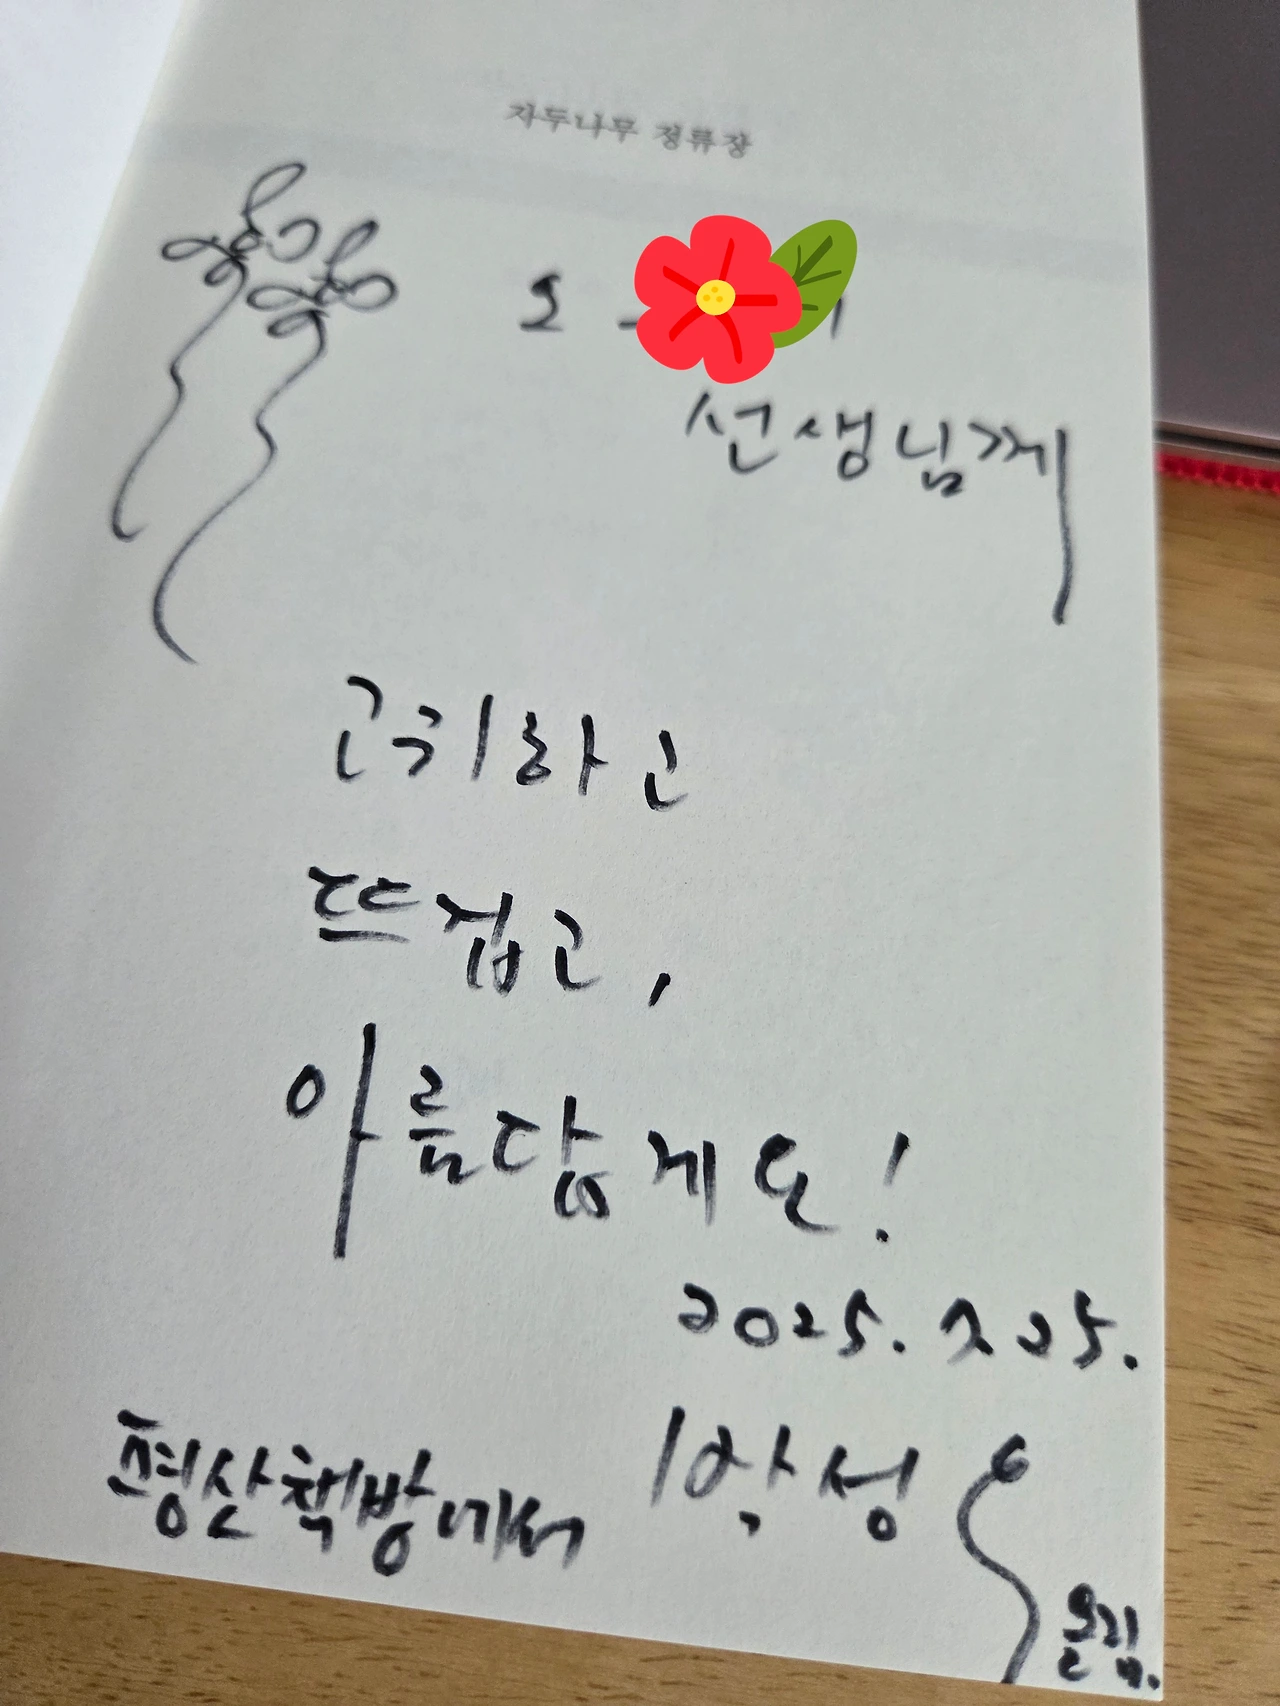 자두나무 정류장
오
선생님께
귀하고
뜨겁고,
아름답게도!
2025. 7. 25.
형산책방에서
박성
올림.